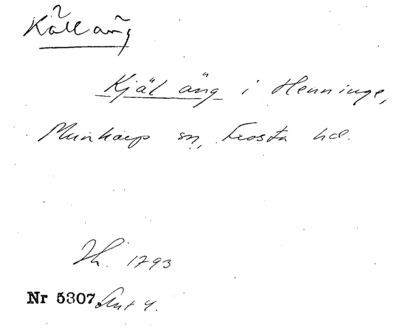 Källäng
Kjäl äng i Henninge,
Munkarp sn, Frosta hd.
1793
Nr 5307